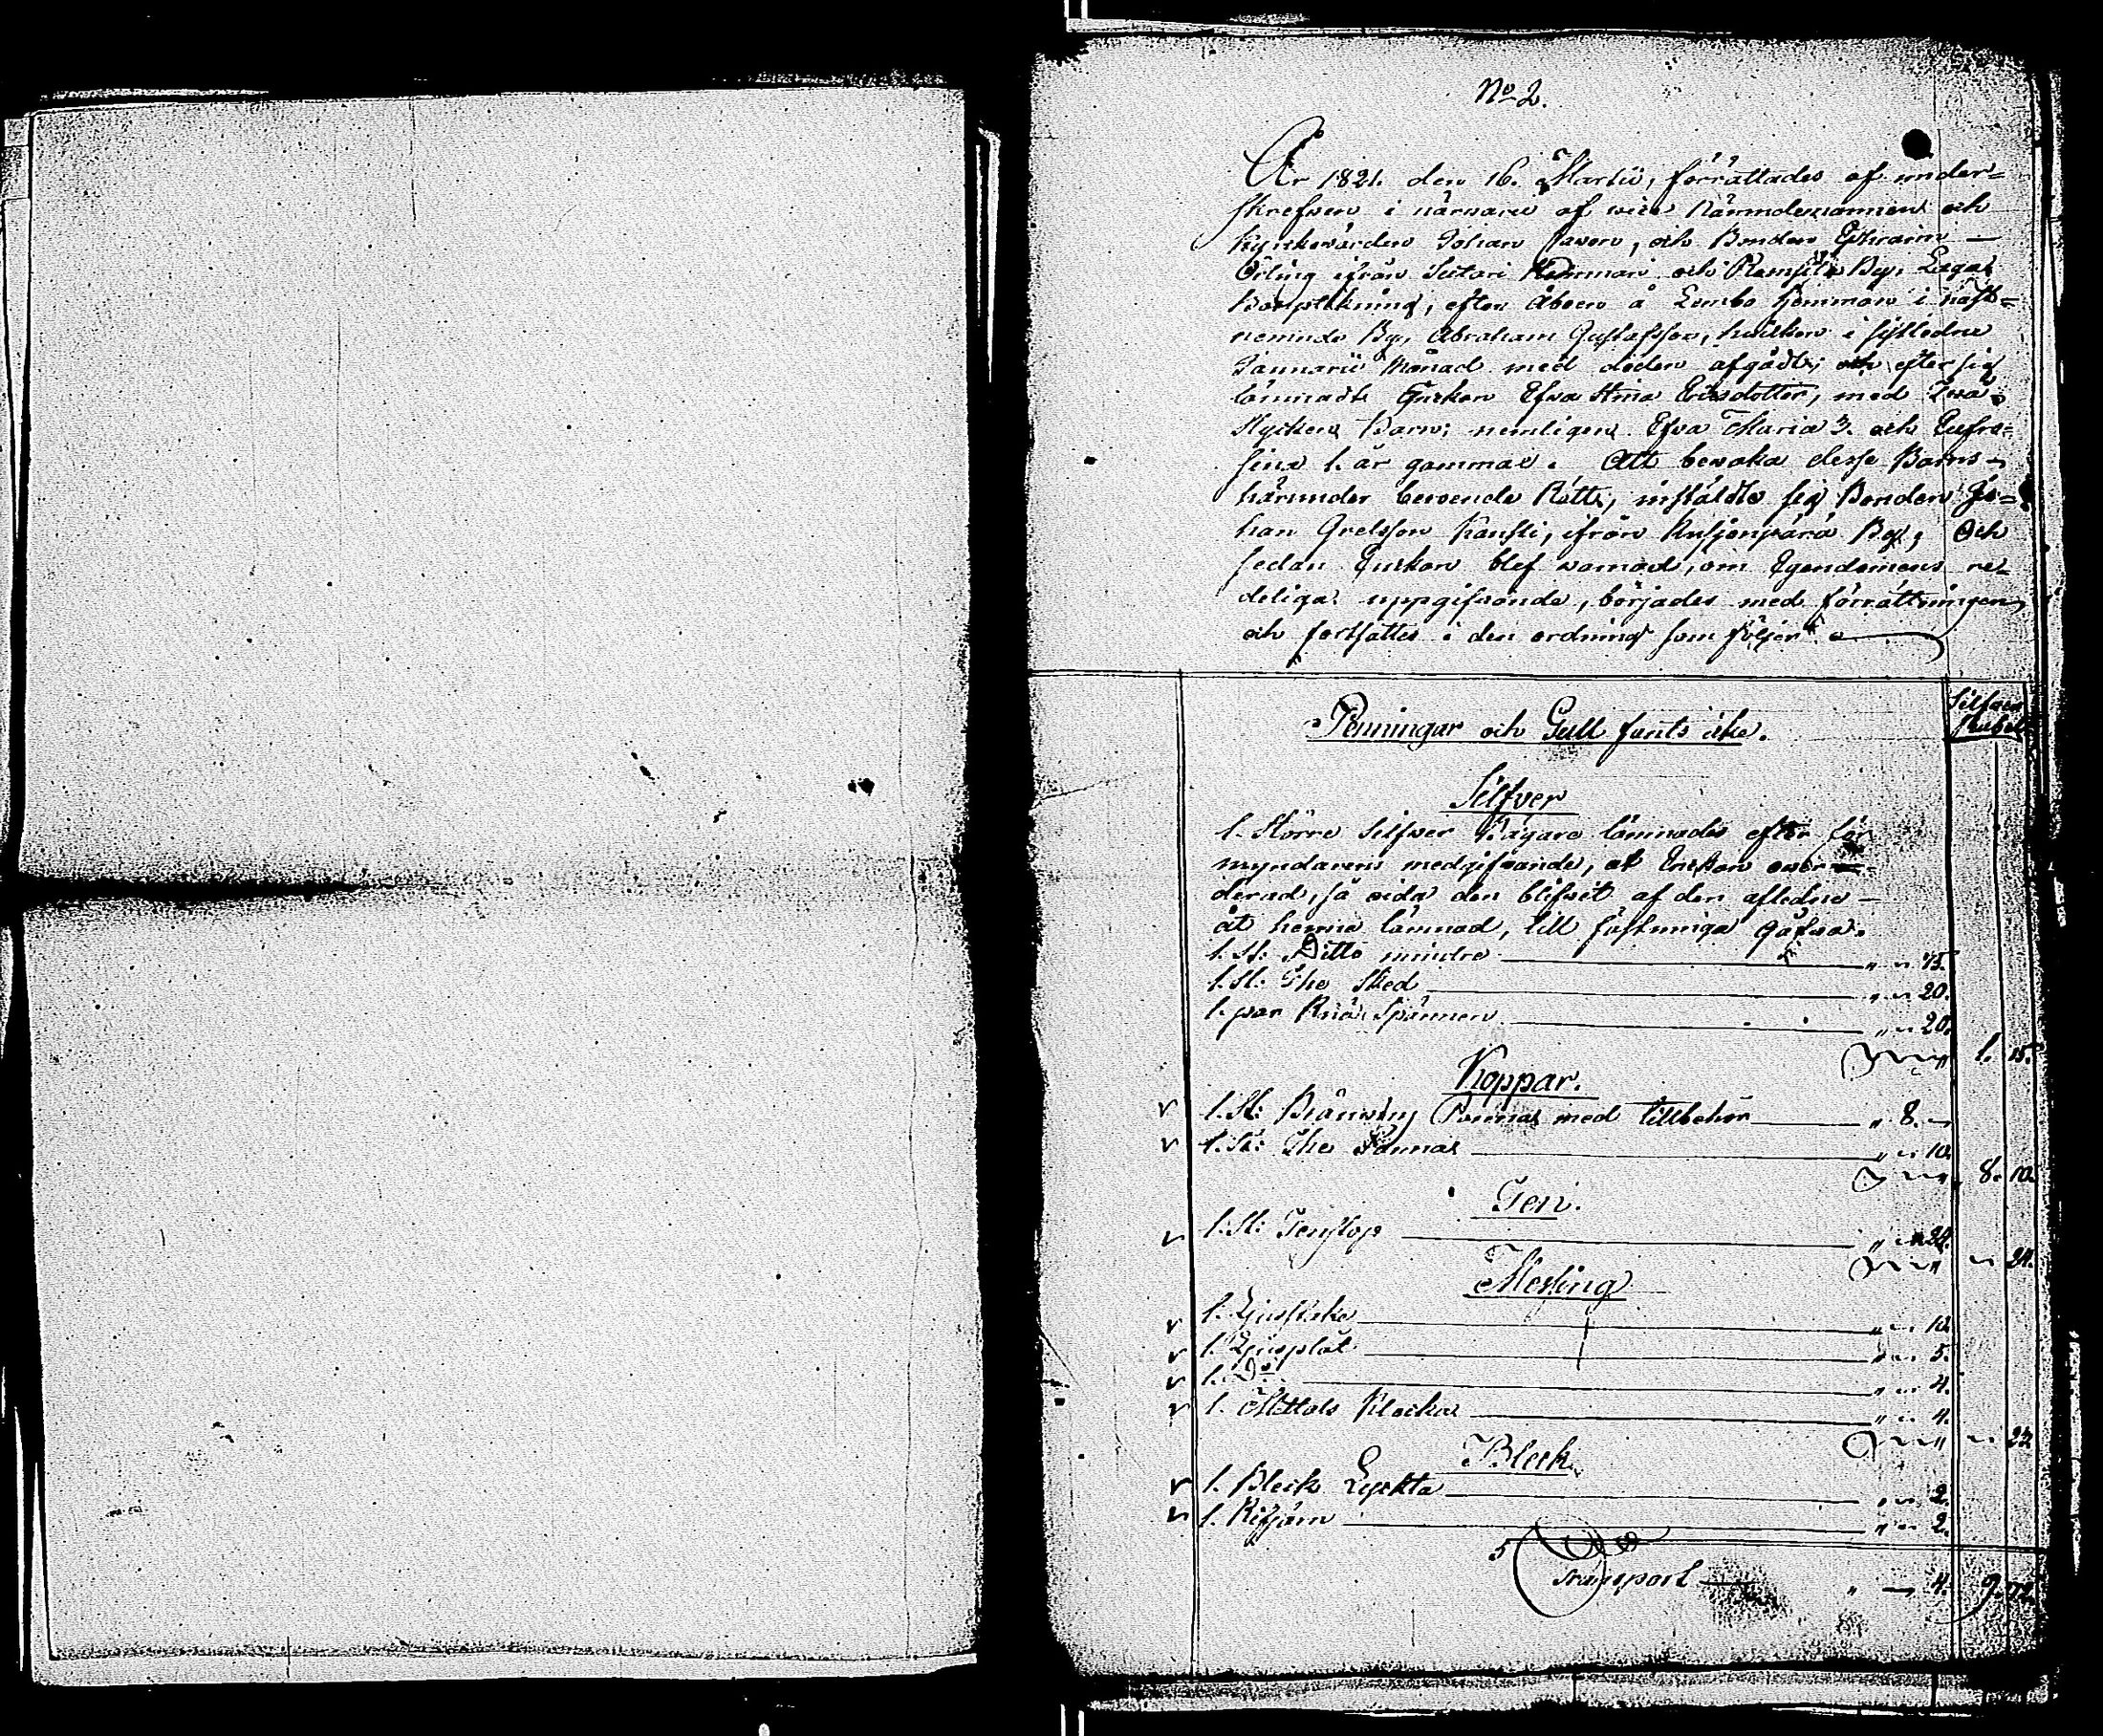 No 2.
År 1821. den 16. Martii, förrättades af under=
skrefven i närvaro af vice Nämndemannen och
Kyrkovärden Johan, och Bonden Ephraim —
Örling ifrån och By, Laga
Bouptekning, efter Åboen å Lembo Hemman i näst=
nemnde By, Abraham Gustafsson, hvilken i sistledne
Januarii Månad med döden afgådt; och efter sig
lämnadt Enkan Efva Stina Ericsdotter, med Tvä
Stycken Barn; nemligen Efva Maria 3. och Eufro=
sina 1. år gammal. Att bevaka desse Barns
härunder beroende Rätt, instälde sig Bonden Jo=
han Grelsson Kauski, ifrån By, Och
sedan Enkan blef varnad, om Egendomens re=
deliga uppgifvande, börjades med förrättningen,
och fortsattes i den ordning som följer.
Silfver
Rubel
Penningar och Gull fants icke.
Silfver
1. Större Silfver Bägare lämnades efter för
myndarens medgifvande, åt Enkan ovär=
derad, så vida den blifvit af den aflednes
åt henne lämnad, till fästninga gåfva.
1. St: Ditto mindre — " " 75.
1. St: The Sked — " " 20.
1. par Knä Spännen — " " 20.
1. 15.
Koppar.
1. St: Bränvins Panna med tillbehör — " 8. —
1. St: The Panna — " " 10.
8. 10.
Ten.
1. St: Tenstop — " " 24.
" 24.
Messing
1. Ljusstake — " " 10.
1. Ljusplåt — " " 5.
1. Do — " " 4.
1. Mettals Klocka — " " 4.
" 23.
Bleck
1. Bleck Lyckta — " " 2.
1. Rifjärn — " " 2.
Transport — " — 4. 9. 72.